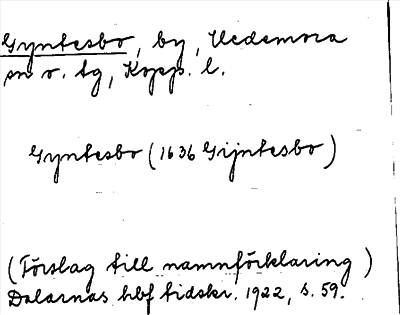 Gyntesbo, by, Hedemora
sn o. tg, Kopp. l.
Gyntesbo (1636 Gijntesbo)
(Förslag till namnförklaring)
Dalarnas hbf tidskr. 1922, s. 59.